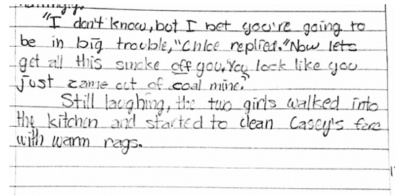 "I don't know, but I bet you're going to
be in big trouble," Chloe replied. "Now lets
get all this smoke off you. You look like you
just came out of coal mine."
Still laughing, the two girls walked into
the kitchen and started to clean Casey's face
with warm rags.